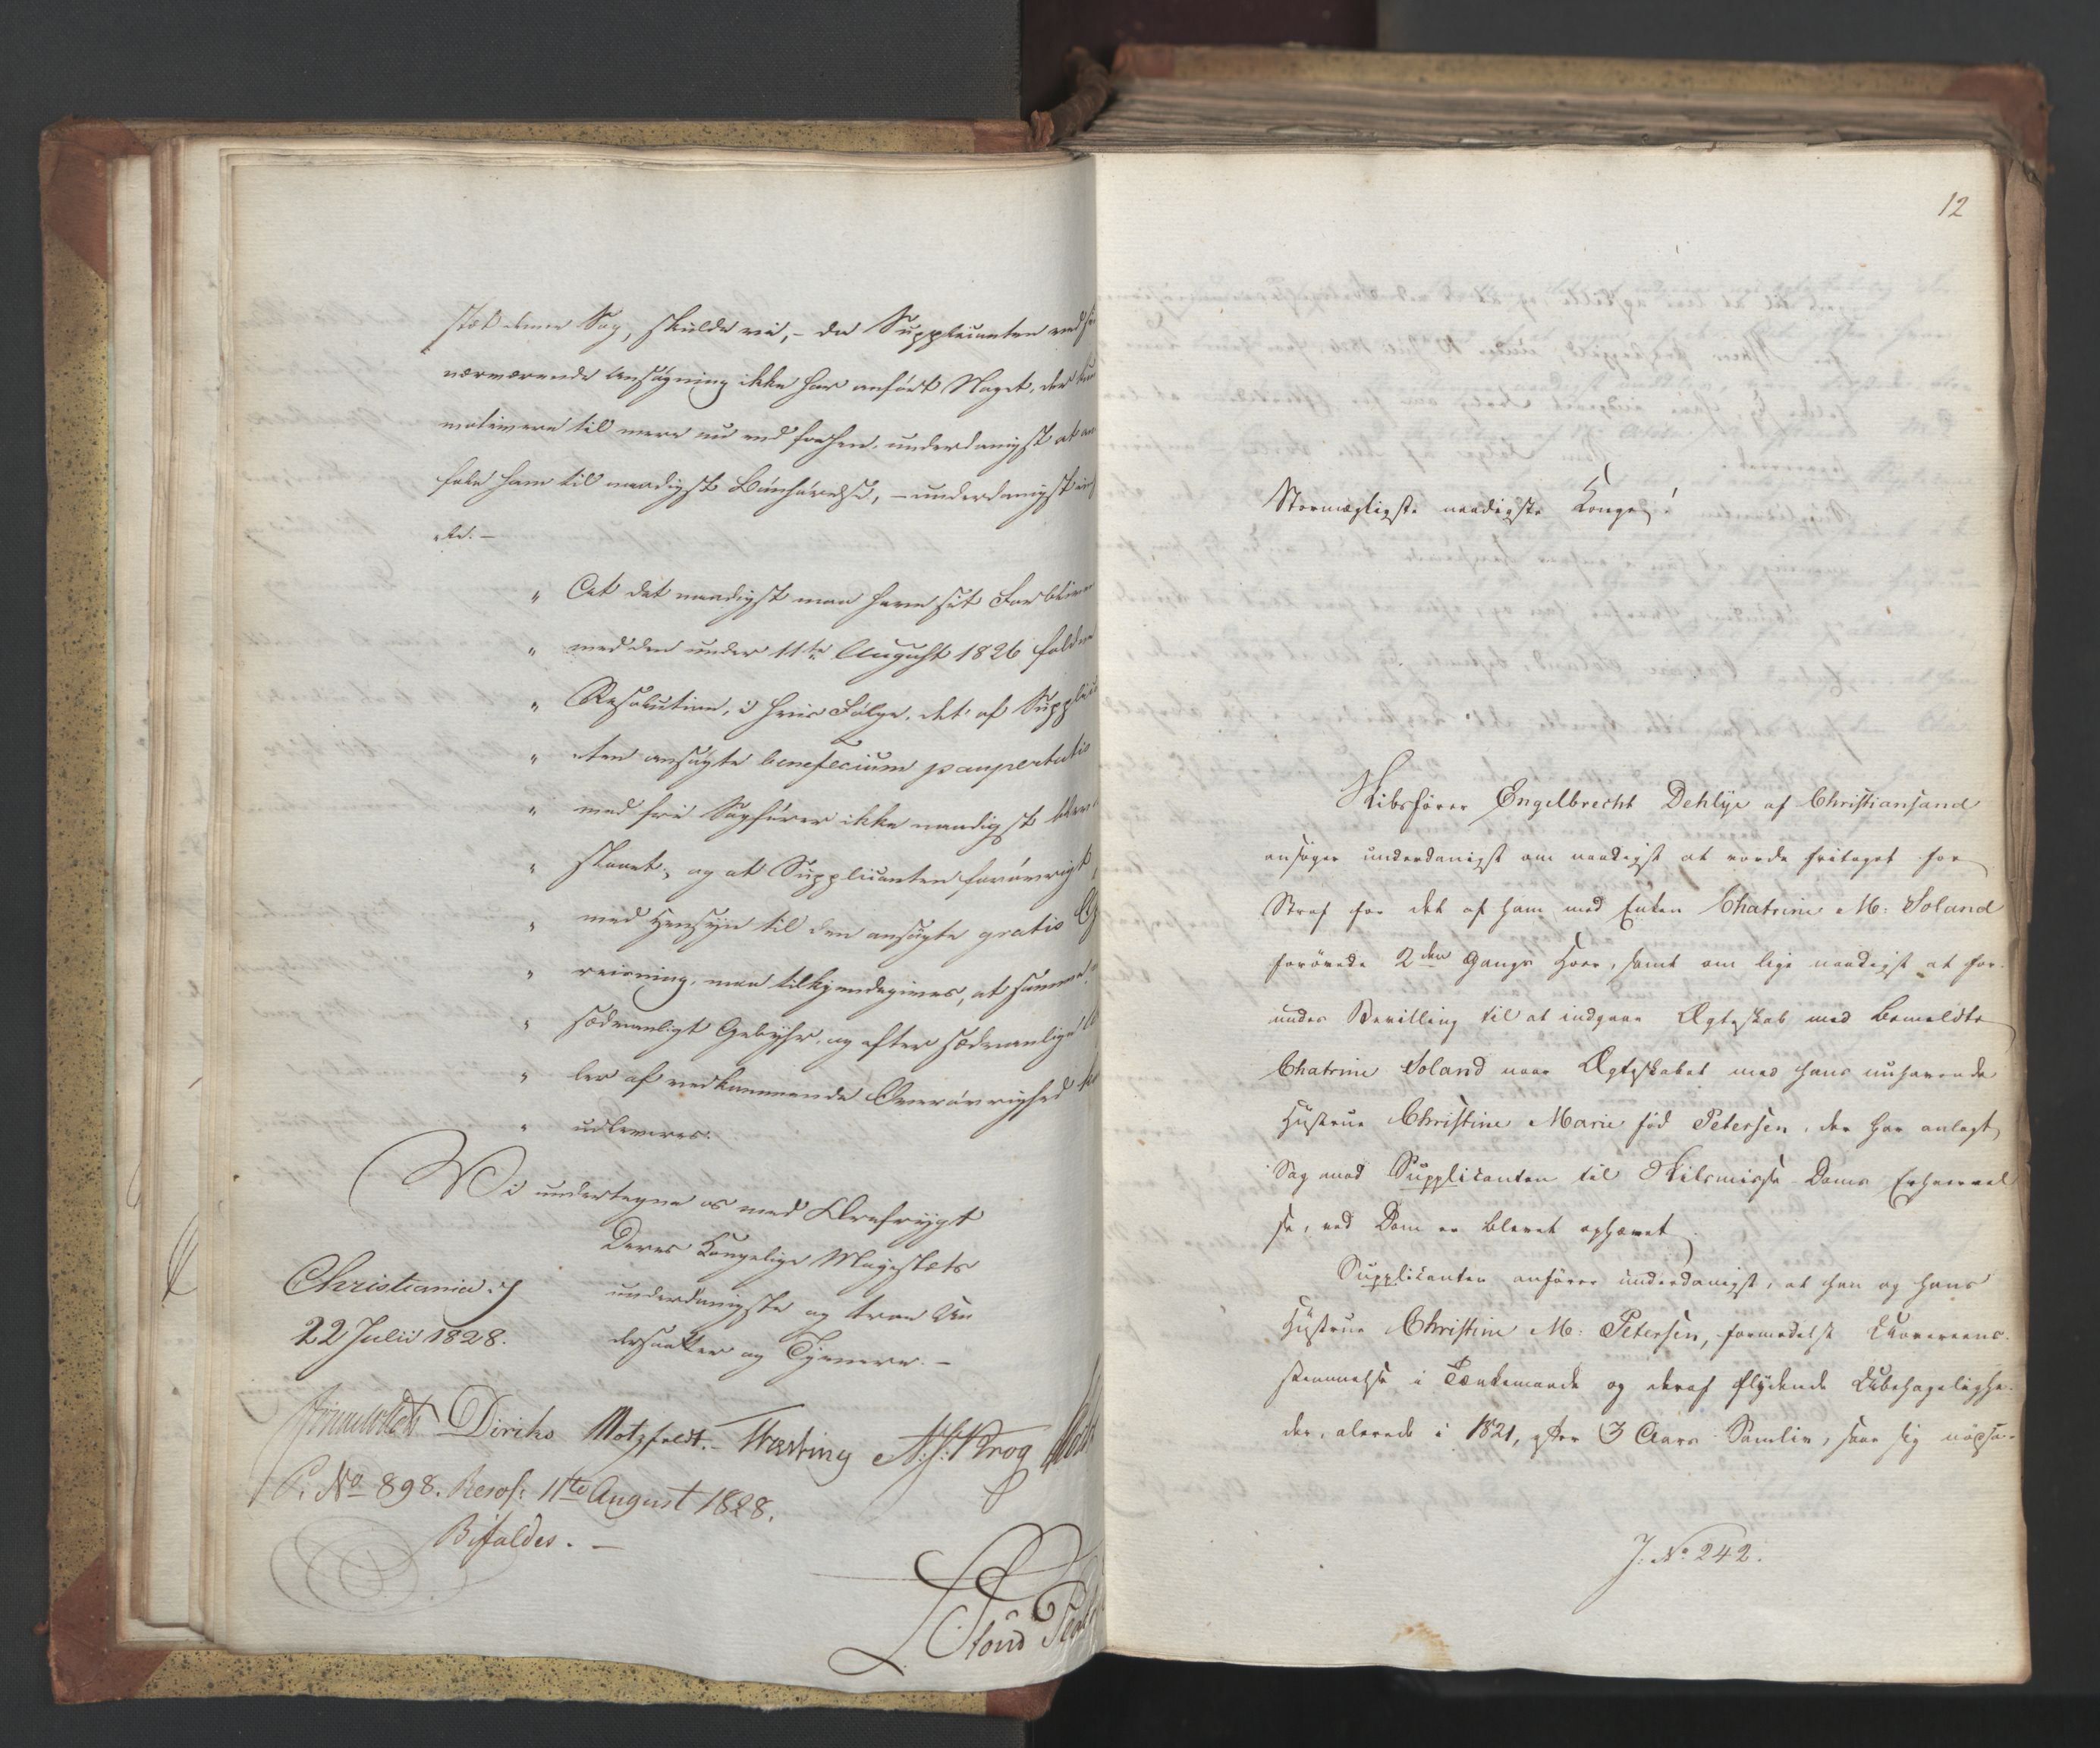 stæk denne Sag, skulde vi, - da Supplicanten ved
nærværende Ansøgning ikke har anført Noget, der
motivere til mere nu end forhen, underdanigst at an
fale ham til naadigst Bønhørelse, - underdanigst
de. -
" At det naadigst maa have sit Forbliven
" med den under 11te August 1826 faldne
" Resolution, i hvis Følge, det af Supplica
" ten ansøgte beneficium paupertatis
" med fri Sagfører ikke naadigst blev
" skaaret, og at Supplicanten forøvrigt,
" med Hensyn til den ansøgte gratis
" reisning, maa tilkjendegives, at samme
" sædvanligt Gebyhr, og efter sædvanlige
" ler af vedkommende Overøvrighed
" udleveres.
Vi undertegne os med Ærefrygt
Deres Kongelige Majestæts
Christiania d
underdanigste og troe Un
22 Julii 1828.
dersaatter og Tjenere. -
Diriks Motzfeldt. Krog
P. No 898. Resol: 11te August 1828.
Bifaldes. -
12
Stormægtigste naadigste Konge!
Skibsfører Engelbrecht Dehlye af Christiansand
ansøger underdanigst om naadigst at vorde fritaget for
Straf for det af ham med Enken Chatrine M: Soland
forøvede 2den Gangs Hoer, samt om lige naadigst at for-
undes Bevilling til at indgaae Ægteskab med bemeldte
Chatrine Soland naar Ægteskabet med hans nuhavende
Hustrue Christine Marie fød Petersen, der har anlagt
Sag mod Supplicanten til Skilsmisse-Doms Erhvervel
se, ved Dom er blevet ophævet.
Supplicanten anfører underdanigst, at han og hans
Hustrue Christine M: Petersen, formedelst Uovereens-
stemmelse i Tænkemaade og deraf flydende Ubehagelighe-
der, alerede i 1821, efter 3 Aars Samliv, saae sig nødsa-
J: No 242.